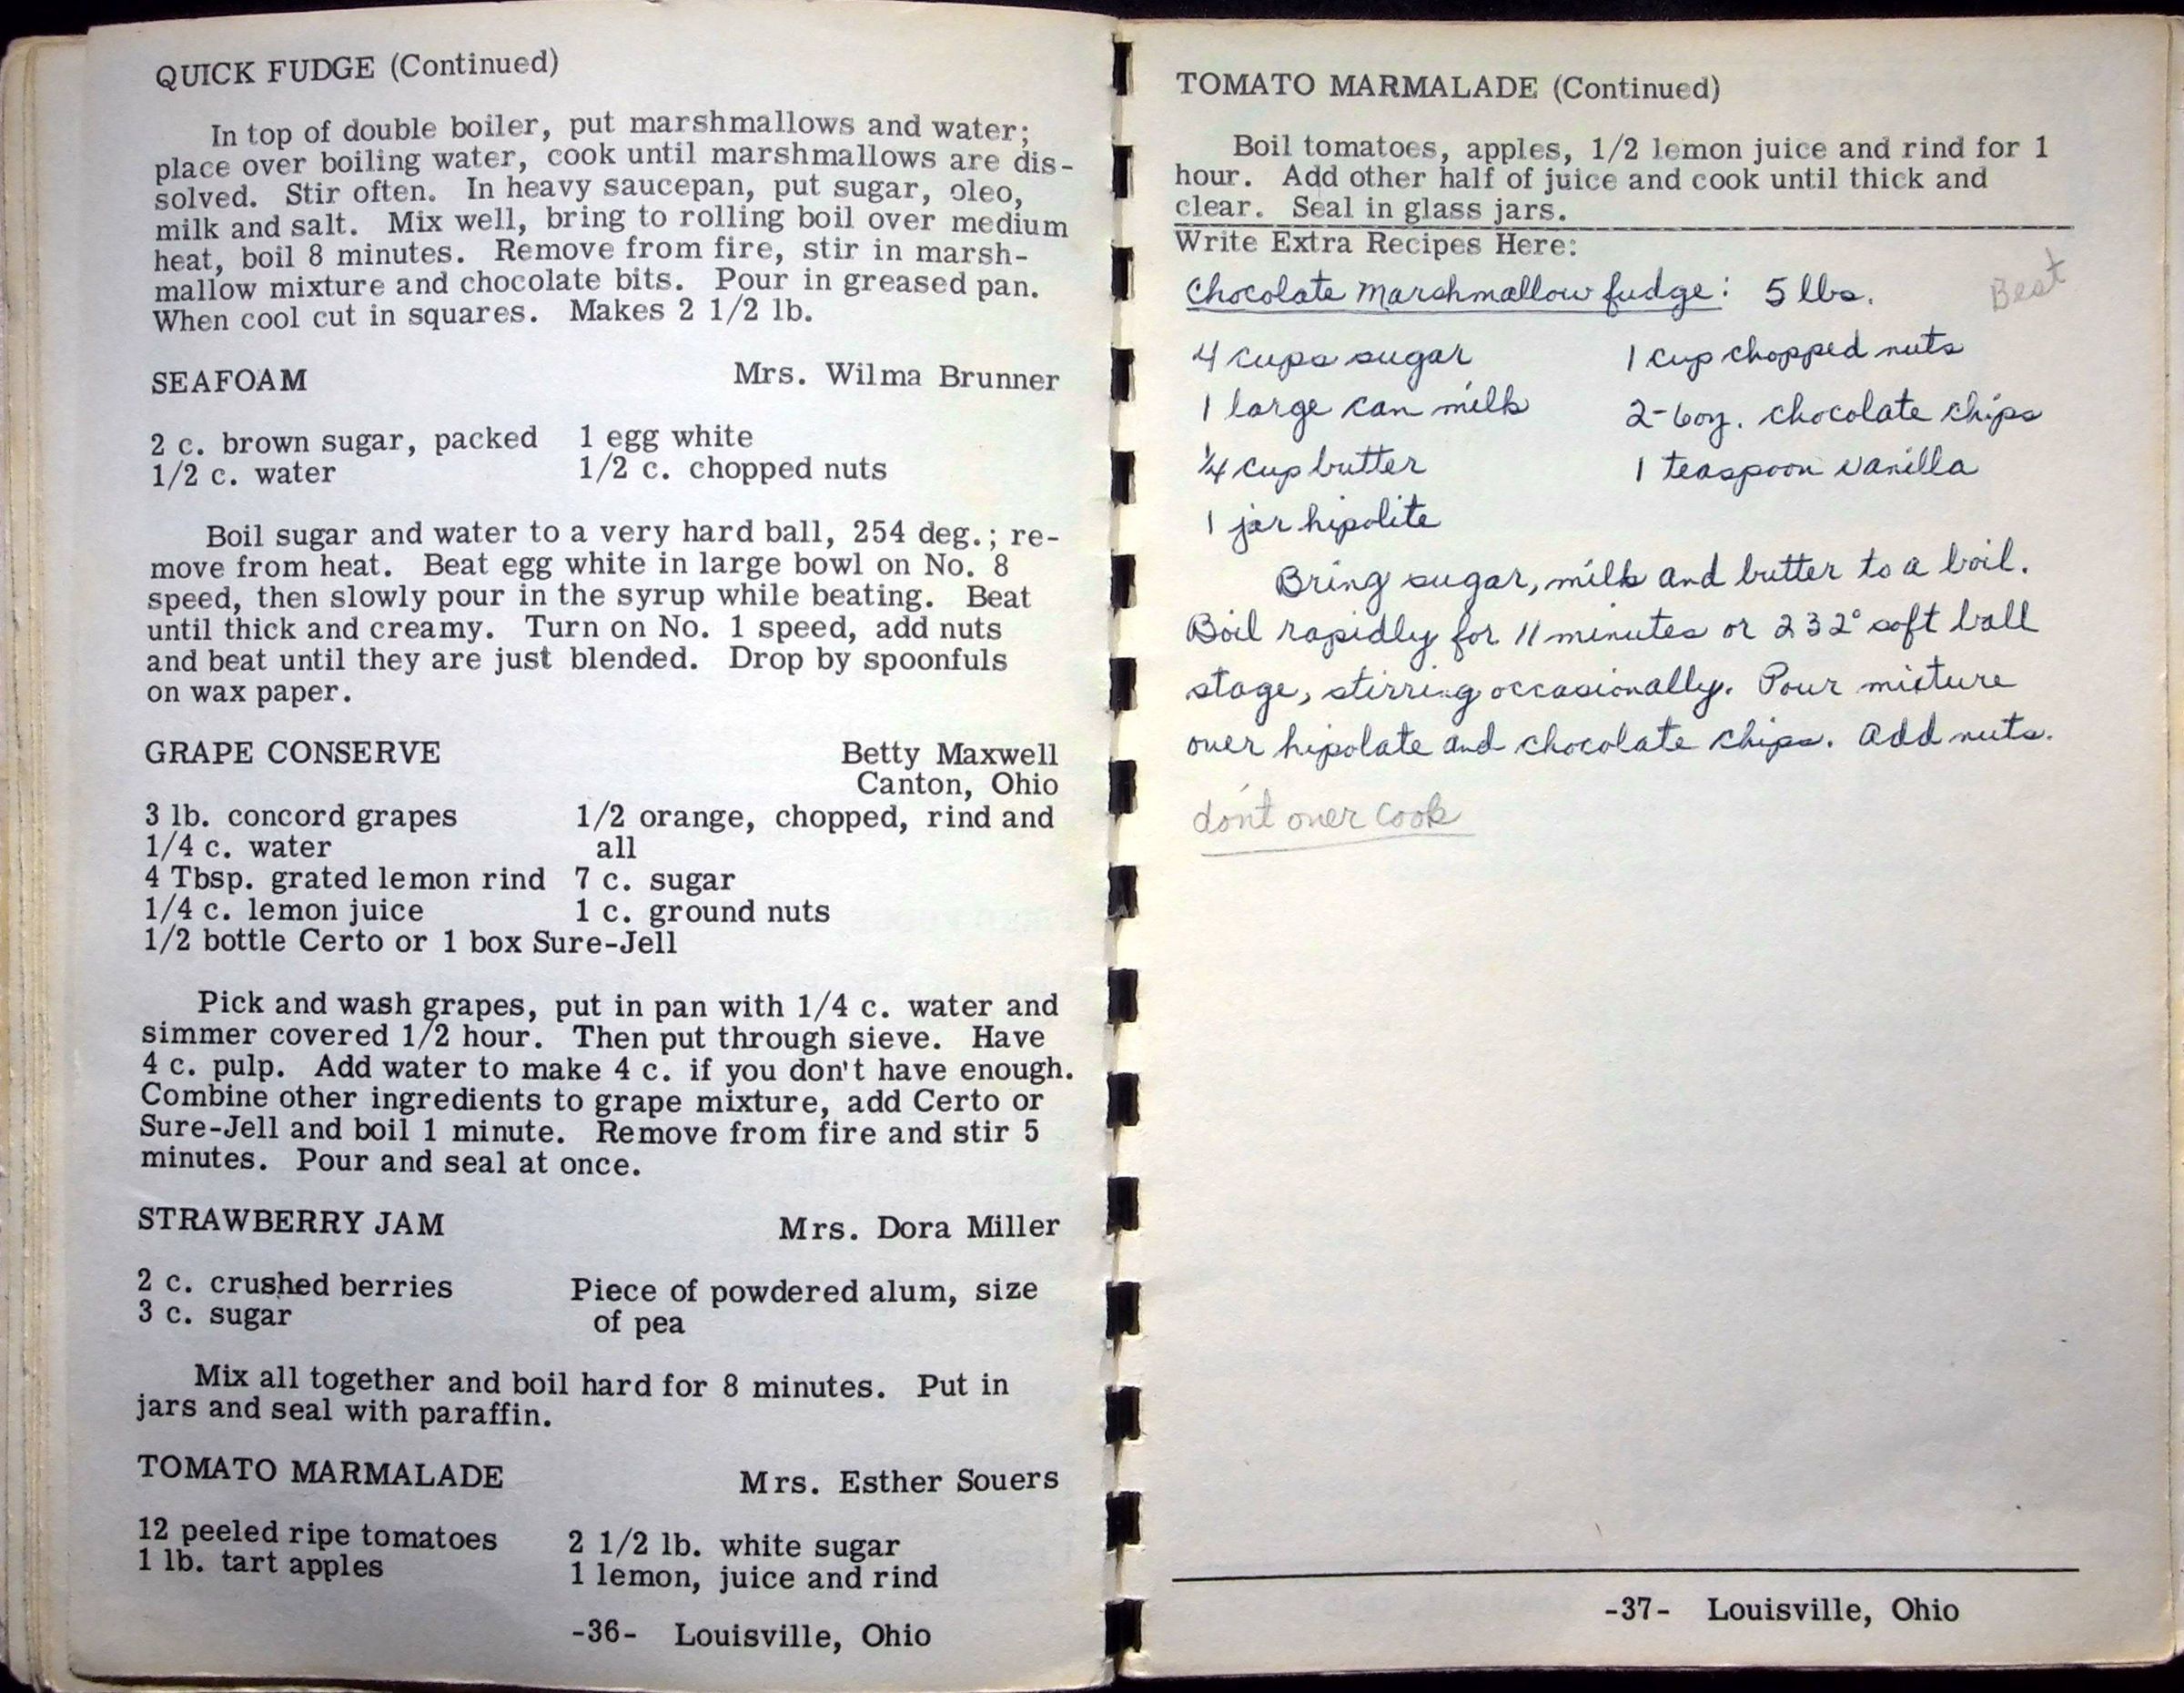 QUICK FUDGE (Continued)
In top of double boiler, put marshmallows and water;
place over boiling water, cook until marshmallows are dis-
solved. Stir often. In heavy saucepan, put sugar, oleo,
milk and salt. Mix well, bring to rolling boil over medium
heat, boil 8 minutes. Remove from fire, stir in marsh-
mallow mixture and chocolate bits. Pour in greased pan.
When cool cut in squares. Makes 2 1/2 lb.
SEAFOAM Mrs. Wilma Brunner
2 c. brown sugar, packed 1 egg white
1/2 c. water 1/2 c. chopped nuts
Boil sugar and water to a very hard ball, 254 deg.; re-
move from heat. Beat egg white in large bowl on No. 8
speed, then slowly pour in the syrup while beating. Beat
until thick and creamy. Turn on No. 1 speed, add nuts
and beat until they are just blended. Drop by spoonfuls
on wax paper.
GRAPE CONSERVE Betty Maxwell
Canton, Ohio
3 lb. concord grapes 1/2 orange, chopped, rind and
1/4 c. water all
4 Tbsp. grated lemon rind 7 c. sugar
1/4 c. lemon juice 1 c. ground nuts
1/2 bottle Certo or 1 box Sure-Jell
Pick and wash grapes, put in pan with 1/4 c. water and
simmer covered 1/2 hour. Then put through sieve. Have
4 c. pulp. Add water to make 4 c. if you don't have enough.
Combine other ingredients to grape mixture, add Certo or
Sure-Jell and boil 1 minute. Remove from fire and stir 5
minutes. Pour and seal at once.
STRAWBERRY JAM Mrs. Dora Miller
2 c. crushed berries Piece of powdered alum, size
3 c. sugar of pea
Mix all together and boil hard for 8 minutes. Put in
jars and seal with paraffin.
TOMATO MARMALADE Mrs. Esther Souers
12 peeled ripe tomatoes 2 1/2 lb. white sugar
1 lb. tart apples 1 lemon, juice and rind
-36- Louisville, Ohio
TOMATO MARMALADE (Continued)
Boil tomatoes, apples, 1/2 lemon juice and rind for 1
hour. Add other half of juice and cook until thick and
clear. Seal in glass jars.
Write Extra Recipes Here:
Chocolate Marshmallow fudge: 5 lbs. Best
4 cups sugar 1 cup chopped nuts
1 large can milk 2-6oz. chocolate chips
1/4 cup butter 1 teaspoon vanilla
1 jar hipolite
Bring sugar, milk and butter to a boil.
Boil rapidly for 11 minutes or 232° soft ball
stage, stirring occasionally. Pour mixture
over hipolate and chocolate chips. Add nuts.
don't over cook
-37- Louisville, Ohio